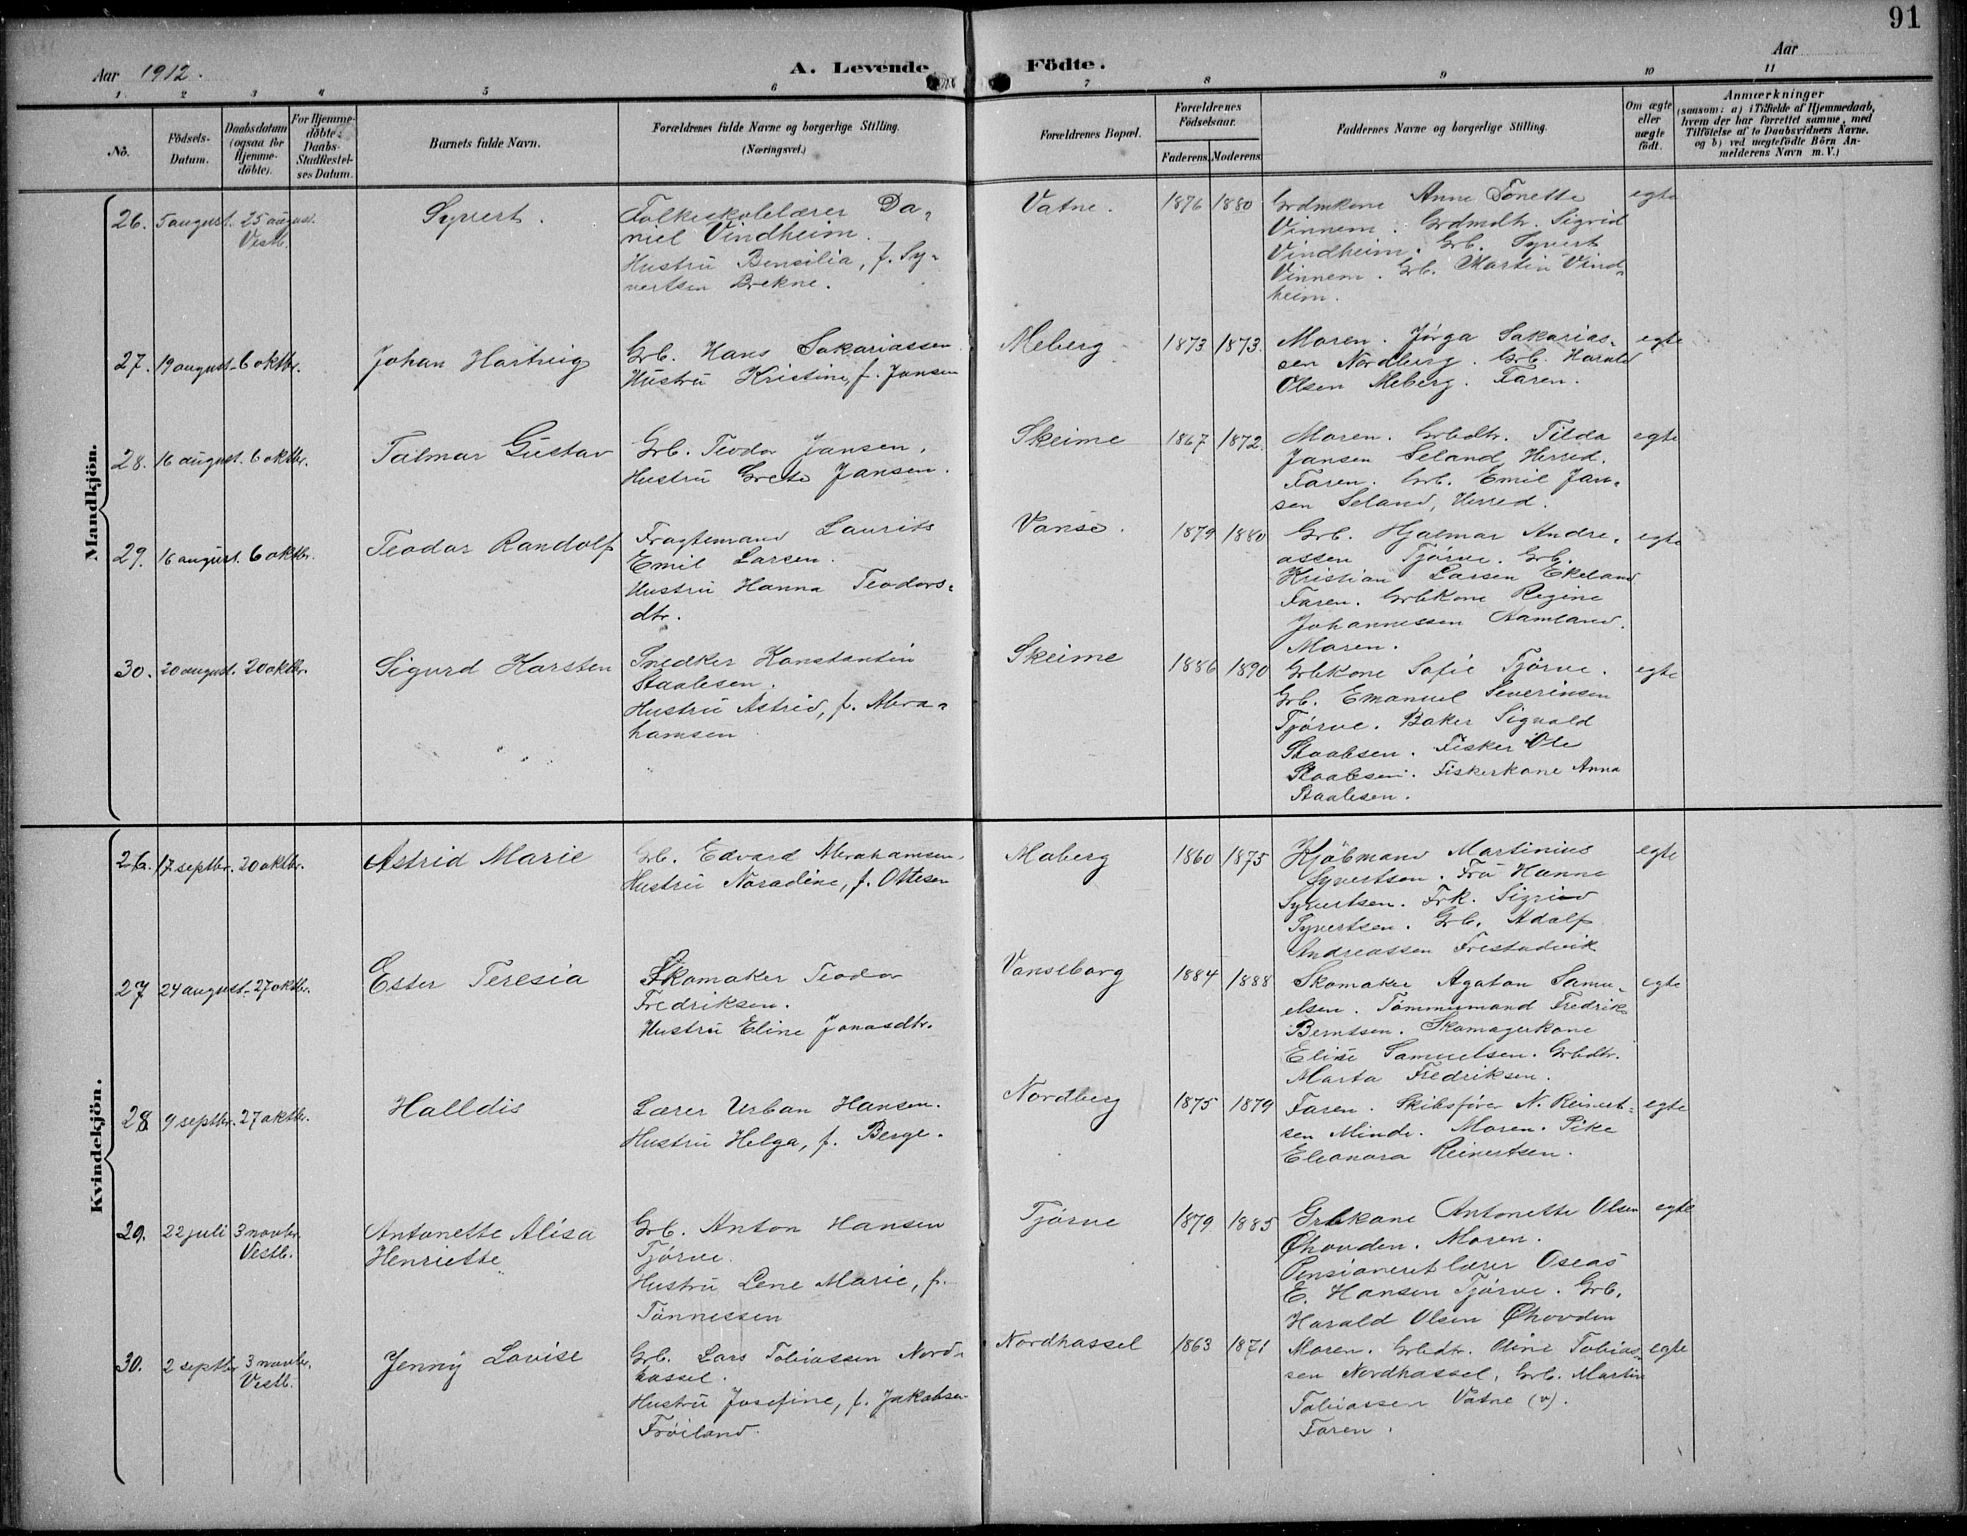 91
Aar 1912.
A. Levende Födte.
Aar
1 2 3 4 5 6 7 8 9 10 11
No.
Födsels-Datum.
Daabsdatum (ogsaa for Hjemme-döbte).
For Hjemme-döbte: Daabs-Stadfæstel-ses Datum.
Barnets fulde Navn.
Forældrenes fulde Navne og borgerlige Stilling.
(Næringsvei.)
Forældrenes Bopæl.
Forældrenes Födselsaar.
Faderens. Moderens.
Faddernes Navne og borgerlige Stilling.
Om ægte eller uægte födt.
Anmærkninger
(saasom: a) i Tilfælde af Hjemmedaab, hvem der har forrettet samme, med Tilföielse af to Daabsvidners Navne. og b) ved uægtefödte Börn An-melderens Navn m. V.)
Mandkjön.
26. 5 august. 25 august. Vestb.
Syvert.
Folkeskolelærer Da-
niel Vindheim.
Hustru Bensilia, f. Sy-
vertsen Brekne.
Vatne. 1876 1880
Grdmkone Anne Tonette
Vinnem. Grdmdtr. Sigrid
Vindheim. Grb. Syvert
Vinnem. Grb. Martin Vind-
heim.
egte
27. 19 august. 6 oktbr.
Johan Hartvig
Grb. Hans Sakariassen
Hustru Kristine, f. Jansen
Meberg 1873 1873.
Moren. Jørga Sakarias-
sen Nordberg. Grb. Harald
Olsen Meberg. Faren.
egte
28. 16 august. 6 oktbr.
Talmar Gustav
Grb. Teodor Jansen.
Hustru Grete Jansen.
Skeime 1867 1872.
Moren. Grbdtr. Tilda
Jansen Seland, Herred.
Faren. Grb. Emil Jan-
sen Seland, Herred.
egte
29. 16 august. 6 oktbr.
Teodor Randolf
Fragtemand Laurits
Emil Larsen.
Hustru Hanna Teodors-
dtr.
Vanse. 1879 1880
Grb. Hjalmar Andre-
assen Tjørve. Grb.
Kristian Larsen Ekeland
Faren. Grbkone Regine
Johannessen Aamland.
Moren.
egte
30. 20 august. 20 oktbr.
Sigurd Karsten
Snedker Konstantin
Staalesen.
Hustru Astrid, f. Abra-
hamsen
Skeime 1886 1890
Grbkone Sofie Tjørve.
Grb. Emanuel Severinsen
Tjørve. Baker Sigvald
Staalesen. Fisker Ole
Staalesen. Fiskerkone Anna
Staalesen.
egte
Kvindekjön.
26. 17 septbr. 20 oktbr.
Astrid Marie
Grb. Edvard Abrahamsen.
Hustru Noradine, f. Ottesen
Maberg 1860 1875
Kjøbmand Martinius
Syvertsen. Fru Hanne
Syvertsen. Frk. Sigrid
Syvertsen. Grb. Adolf
Andreassen Frestadvik
egte
27 24 august. 27 oktbr.
Ester Teresia
Skomaker Teodor
Fredriksen.
Hustru Eline Jonasdtr.
Vanseborg 1884 1888
Skomaker Agaton Samu-
elsen. Tømmermand Fredrik
Berntsen. Skomagerkone
Elise Samuelsen. Grbdtr.
Marta Fredriksen.
egte
28 9 septbr. 27 oktbr.
Halldis
Lærer Urban Hansen.
Hustru Helga, f. Berge.
Nordberg 1875 1879
Faren. Skibsfører N. Reinert-
sen Minde. Moren. Pike
Eleonora Reinertsen.
egte
29. 22 juli 3 novbr. Vestb.
Antonette Alisa
Henriette
Grb. Anton Hansen
Tjørve.
Hustru Lene Marie, f.
Tønnessen
Tjørve 1879 1885
Grbkone Antonette Olsen
Øhovden. Moren.
Pensioneret lærer Oseas
E. Hansen Tjørve. Grb.
Harald Olsen Øhovden
egte
30. 2 septbr. 3 novbr. Vestb.
Jenny Lovise
Grb. Lars Tobiassen Nord-
hassel.
Hustru Josefine, f. Jakobsen
Frøiland.
Nordhassel 1863 1871
Moren. Grbdtr. Oline Tobias-
sen Nordhassel, Grb. Martin
Tobiassen Vatne (v).
Faren.
egte